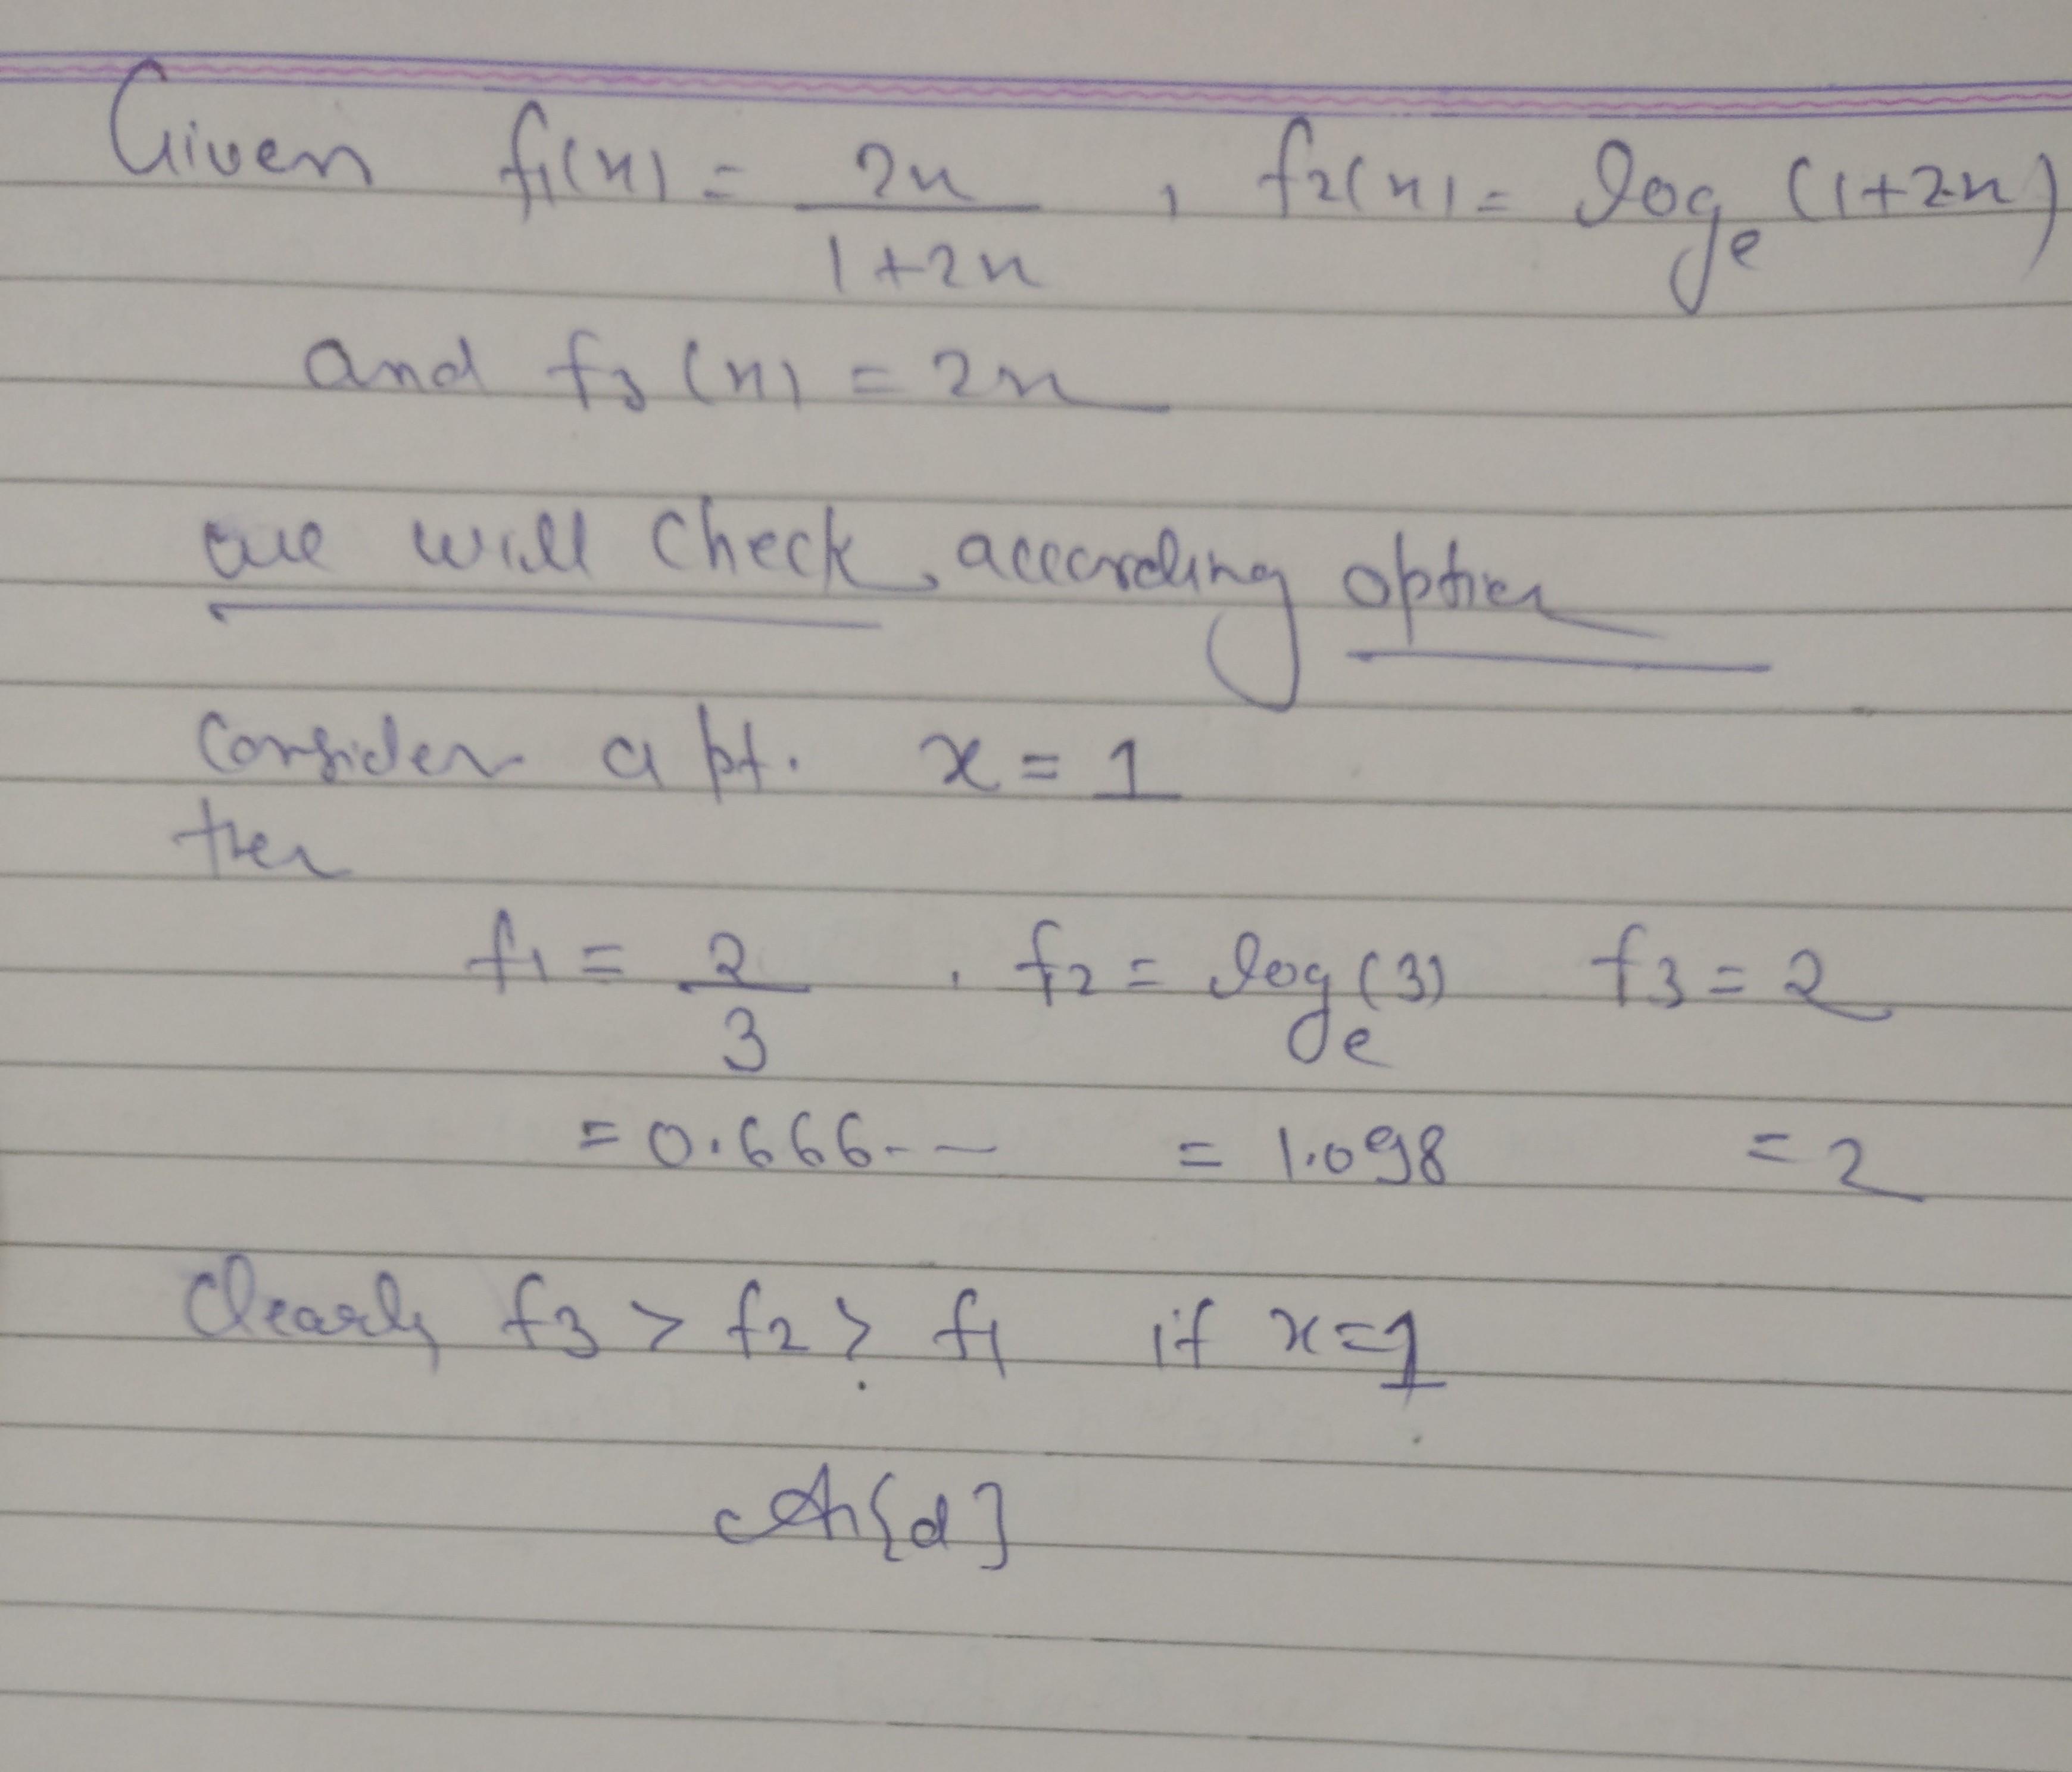 Given f1(x) = 2x / 1+2x , f2(x) = log e (1+2x)
and f3(x) = 2x
we will check, according option
Consider a pt. x = 1
then
f1 = 2/3 , f2 = log e (3) f3 = 2
= 0.666-- = 1.098 = 2
Clearly f3 > f2 > f1 if x=1
[d]